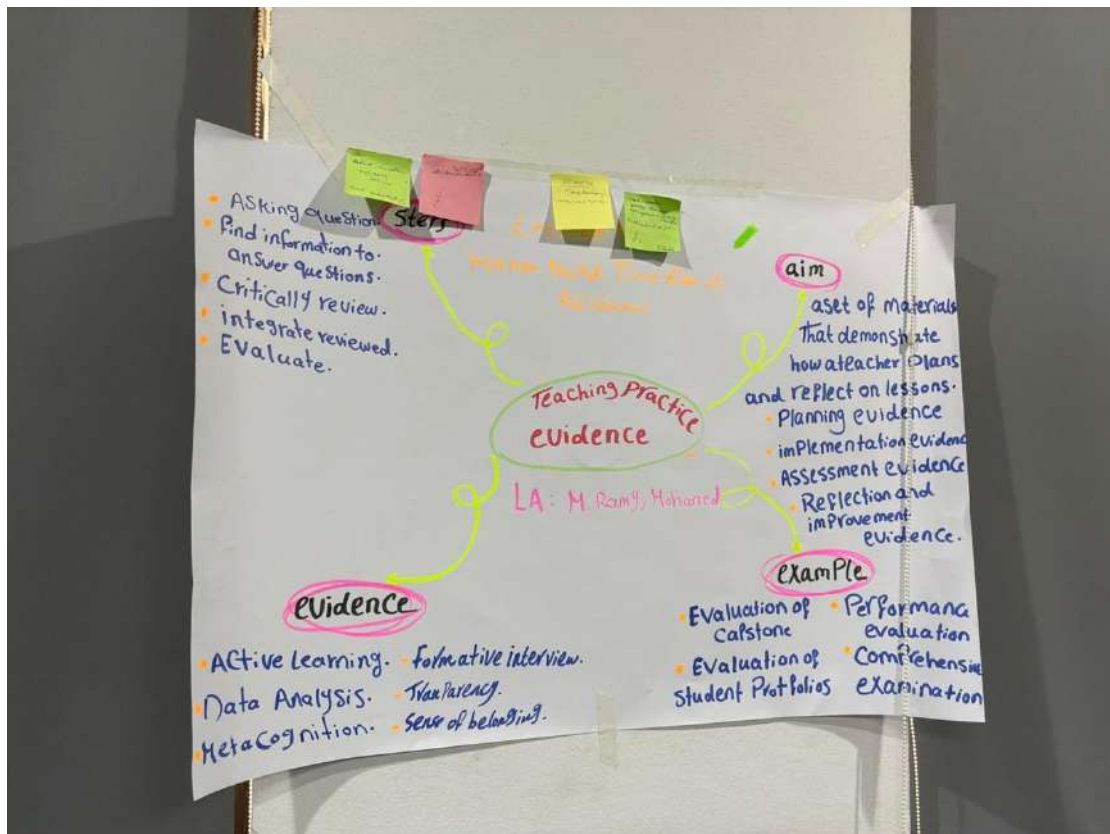 Steps
• Asking question.
• find information to.
answer questions.
• Critically review.
• integrate reviewed.
• Evaluate.
aim
aset of materials
That demonstrate
how ateacher Plans
and reflect on lessons.
• Planning evidence
implementation evidenc
• Assessment evidence
• Reflection and
improvement
evidence.
Teaching Practice
evidence
LA: M. Ramy, Mohaned
evidence
• Active Learning.
• Data Analysis.
• Metacognition.
• formative interview.
• Tranparency.
• Sense of belonging.
example
• Evaluation of
Capstone
• Evaluation of
Student Protfolios
• Performanc
evaluation
• Comprehensive
examination